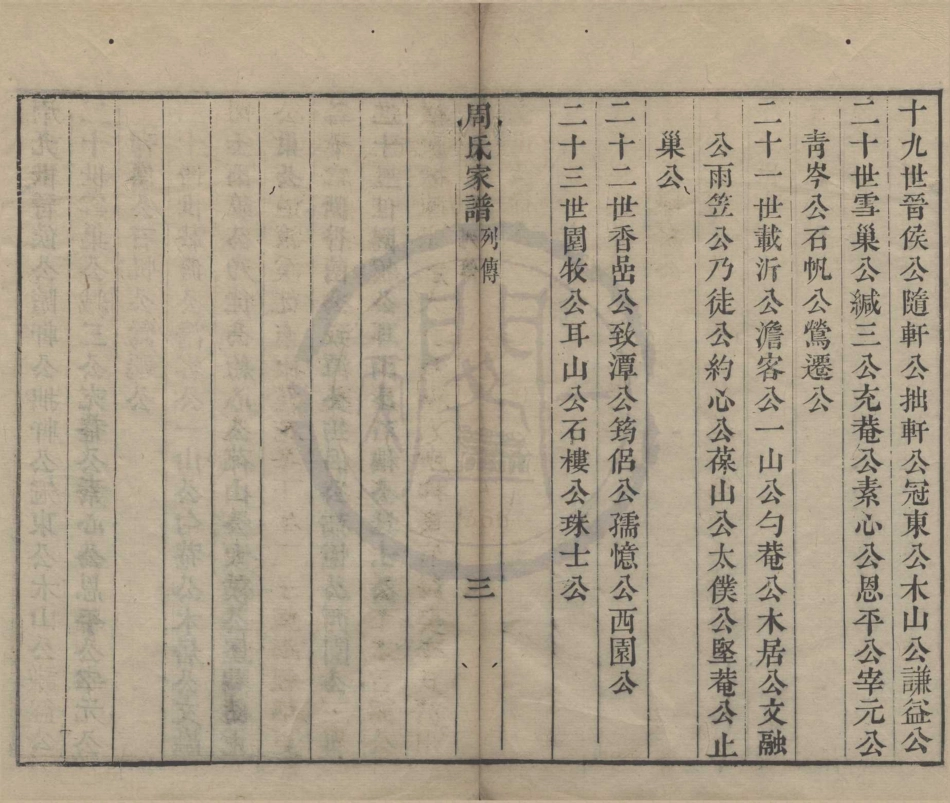 十九世晉侯公隨軒公拙軒公冠東公木山公謙益公
二十世雪巢公緘三公充菴公素心公恩平公宰元公
青岑公石帆公鶯遷公
二十一世載沂公澹客公一山公勺菴公木居公文融
公雨笠公乃徒公約心公葆山公太僕公堅菴公止
巢公
二十二世香喦公致潭公筠侶公孺憶公西園公
二十三世圍牧公耳山公石樓公珠士公
周氏家譜 列傳 三